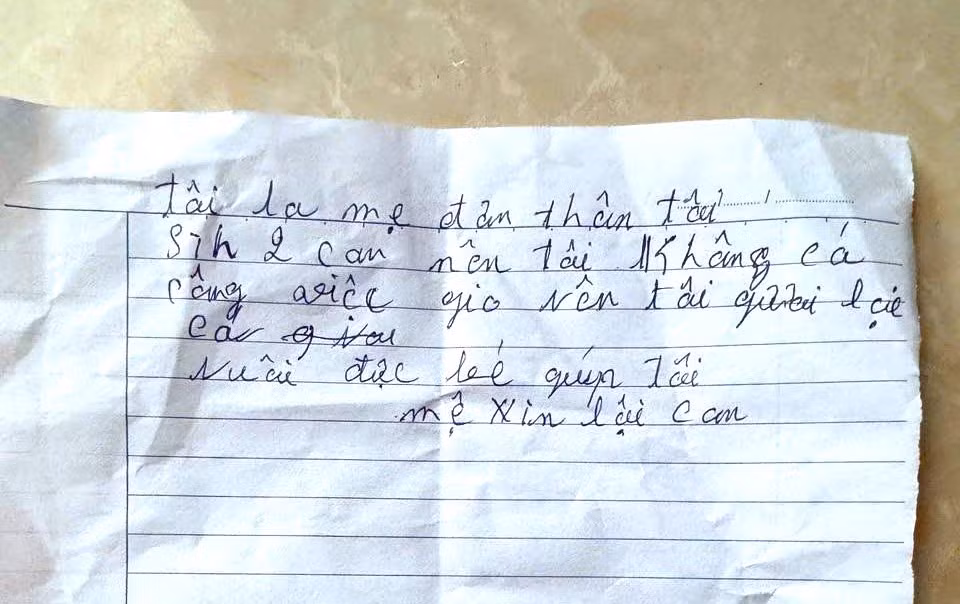 tôi la mẹ đơn thân tôi
Sih 2 con nên tôi Không có
công việc gio nên tôi gưi lại
có
nuôi đực bé giúp tôi
mẹ xin lỗi con